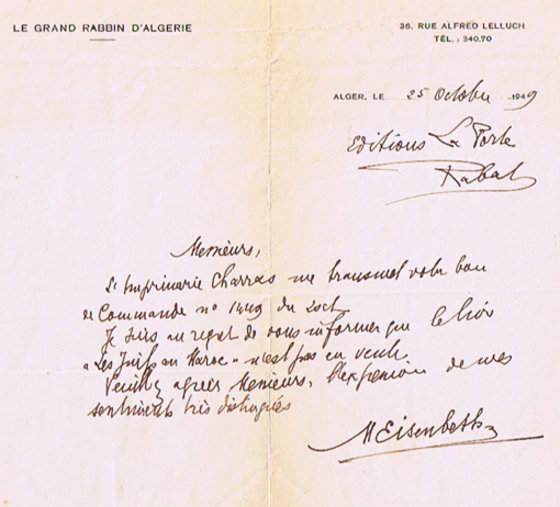 LE GRAND RABBIN D'ALGERIE
36, RUE ALFRED LELLUCH
TÉL. : 340.70
ALGER, LE 25 Octobre 1949
Editions La Porte
Rabat
Messieurs,
L'Imprimerie Charras me transmet votre bon
de Commande nº 1449 du 20ct
Je suis au regret de vous informer que le livre
"Les Juifs au Maroc" n'est pas en vente.
Veuillez agréer Messieurs, l'expression de mes
sentiments très distingués
M Eisenbeth